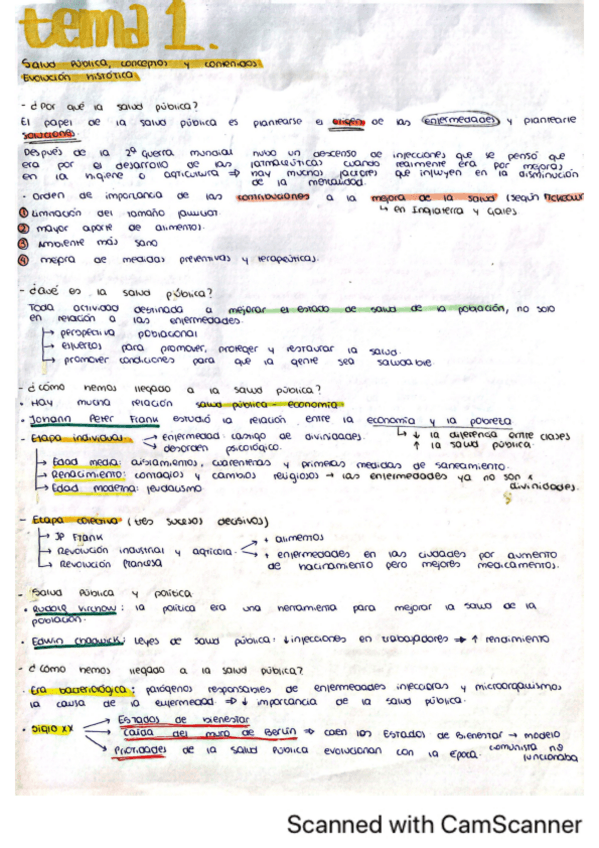 tema 1.
Salud Pública, conceptos y contenidos
Evolución histórica
- ¿Por qué la salud pública?
El papel de la salud pública es plantearse el origen de las enfermedades y plantearle
soluciones.
Después de la 2ª guerra mundial hubo un descenso de infecciones que se pensó que
era por el desarrollo de las farmacéuticas cuando realmente era por mejoras
en la higiene o agricultura ⇒ hay muchos factores que influyen en la disminución
de la mortalidad.
- Orden de importancia de las contribuciones a la mejora de la salud (según Mckeown
↳ en Inglaterra y Gales
① Limitación del tamaño familiar
② mayor aporte de alimentos.
③ Ambiente más sano
④ mejora de medidas preventivas y terapéuticas.
- ¿Qué es la salud pública?
Toda actividad destinada a mejorar el estado de salud de la población, no solo
en relación a las enfermedades.
→ perspectiva poblacional
→ esfuerzos para promover, proteger y restaurar la salud.
→ promover condiciones para que la gente sea saludable.
- ¿Cómo hemos llegado a la salud pública?
• Hay mucha relación salud pública - economía
• Johann Peter Frank estudió la relación entre la economía y la pobreza
↳ ↓ la diferencia entre clases
↑ la salud pública.
- Etapa individual → enfermedad: castigo de divinidades.
→ desorden psicológico.
→ Edad media: aislamientos, cuarentenas y primeras medidas de saneamiento.
→ Renacimiento: contagios y cambios religiosos → las enfermedades ya no son x
divinidades.
→ Edad moderna: feudalismo
- Etapa colectiva (tres sucesos decisivos)
→ JP Frank
→ Revolución industrial y agrícola. → + alimentos
→ + enfermedades en las ciudades por aumento
de hacinamiento pero mejores medicamentos.
→ Revolución francesa
- Salud Pública y política
• Rudolf Virchow: la política era una herramienta para mejorar la salud de la
población.
• Edwin Chadwick: Leyes de salud pública: ↓ infecciones en trabajadores ⇒ ↑ rendimiento
- ¿Cómo hemos llegado a la salud pública?
• Era bacteriológica: patógenos responsables de enfermedades infecciosas y microorganismos
la causa de la enfermedad ⇒ ↓ importancia de la salud pública.
• Siglo XX → Estados de bienestar
→ Caída del muro de Berlín ⇒ caen los Estados de Bienestar → modelo
comunista no
funcionaba
→ Prioridades de la Salud Pública evolucionan con la época.
Scanned with CamScanner